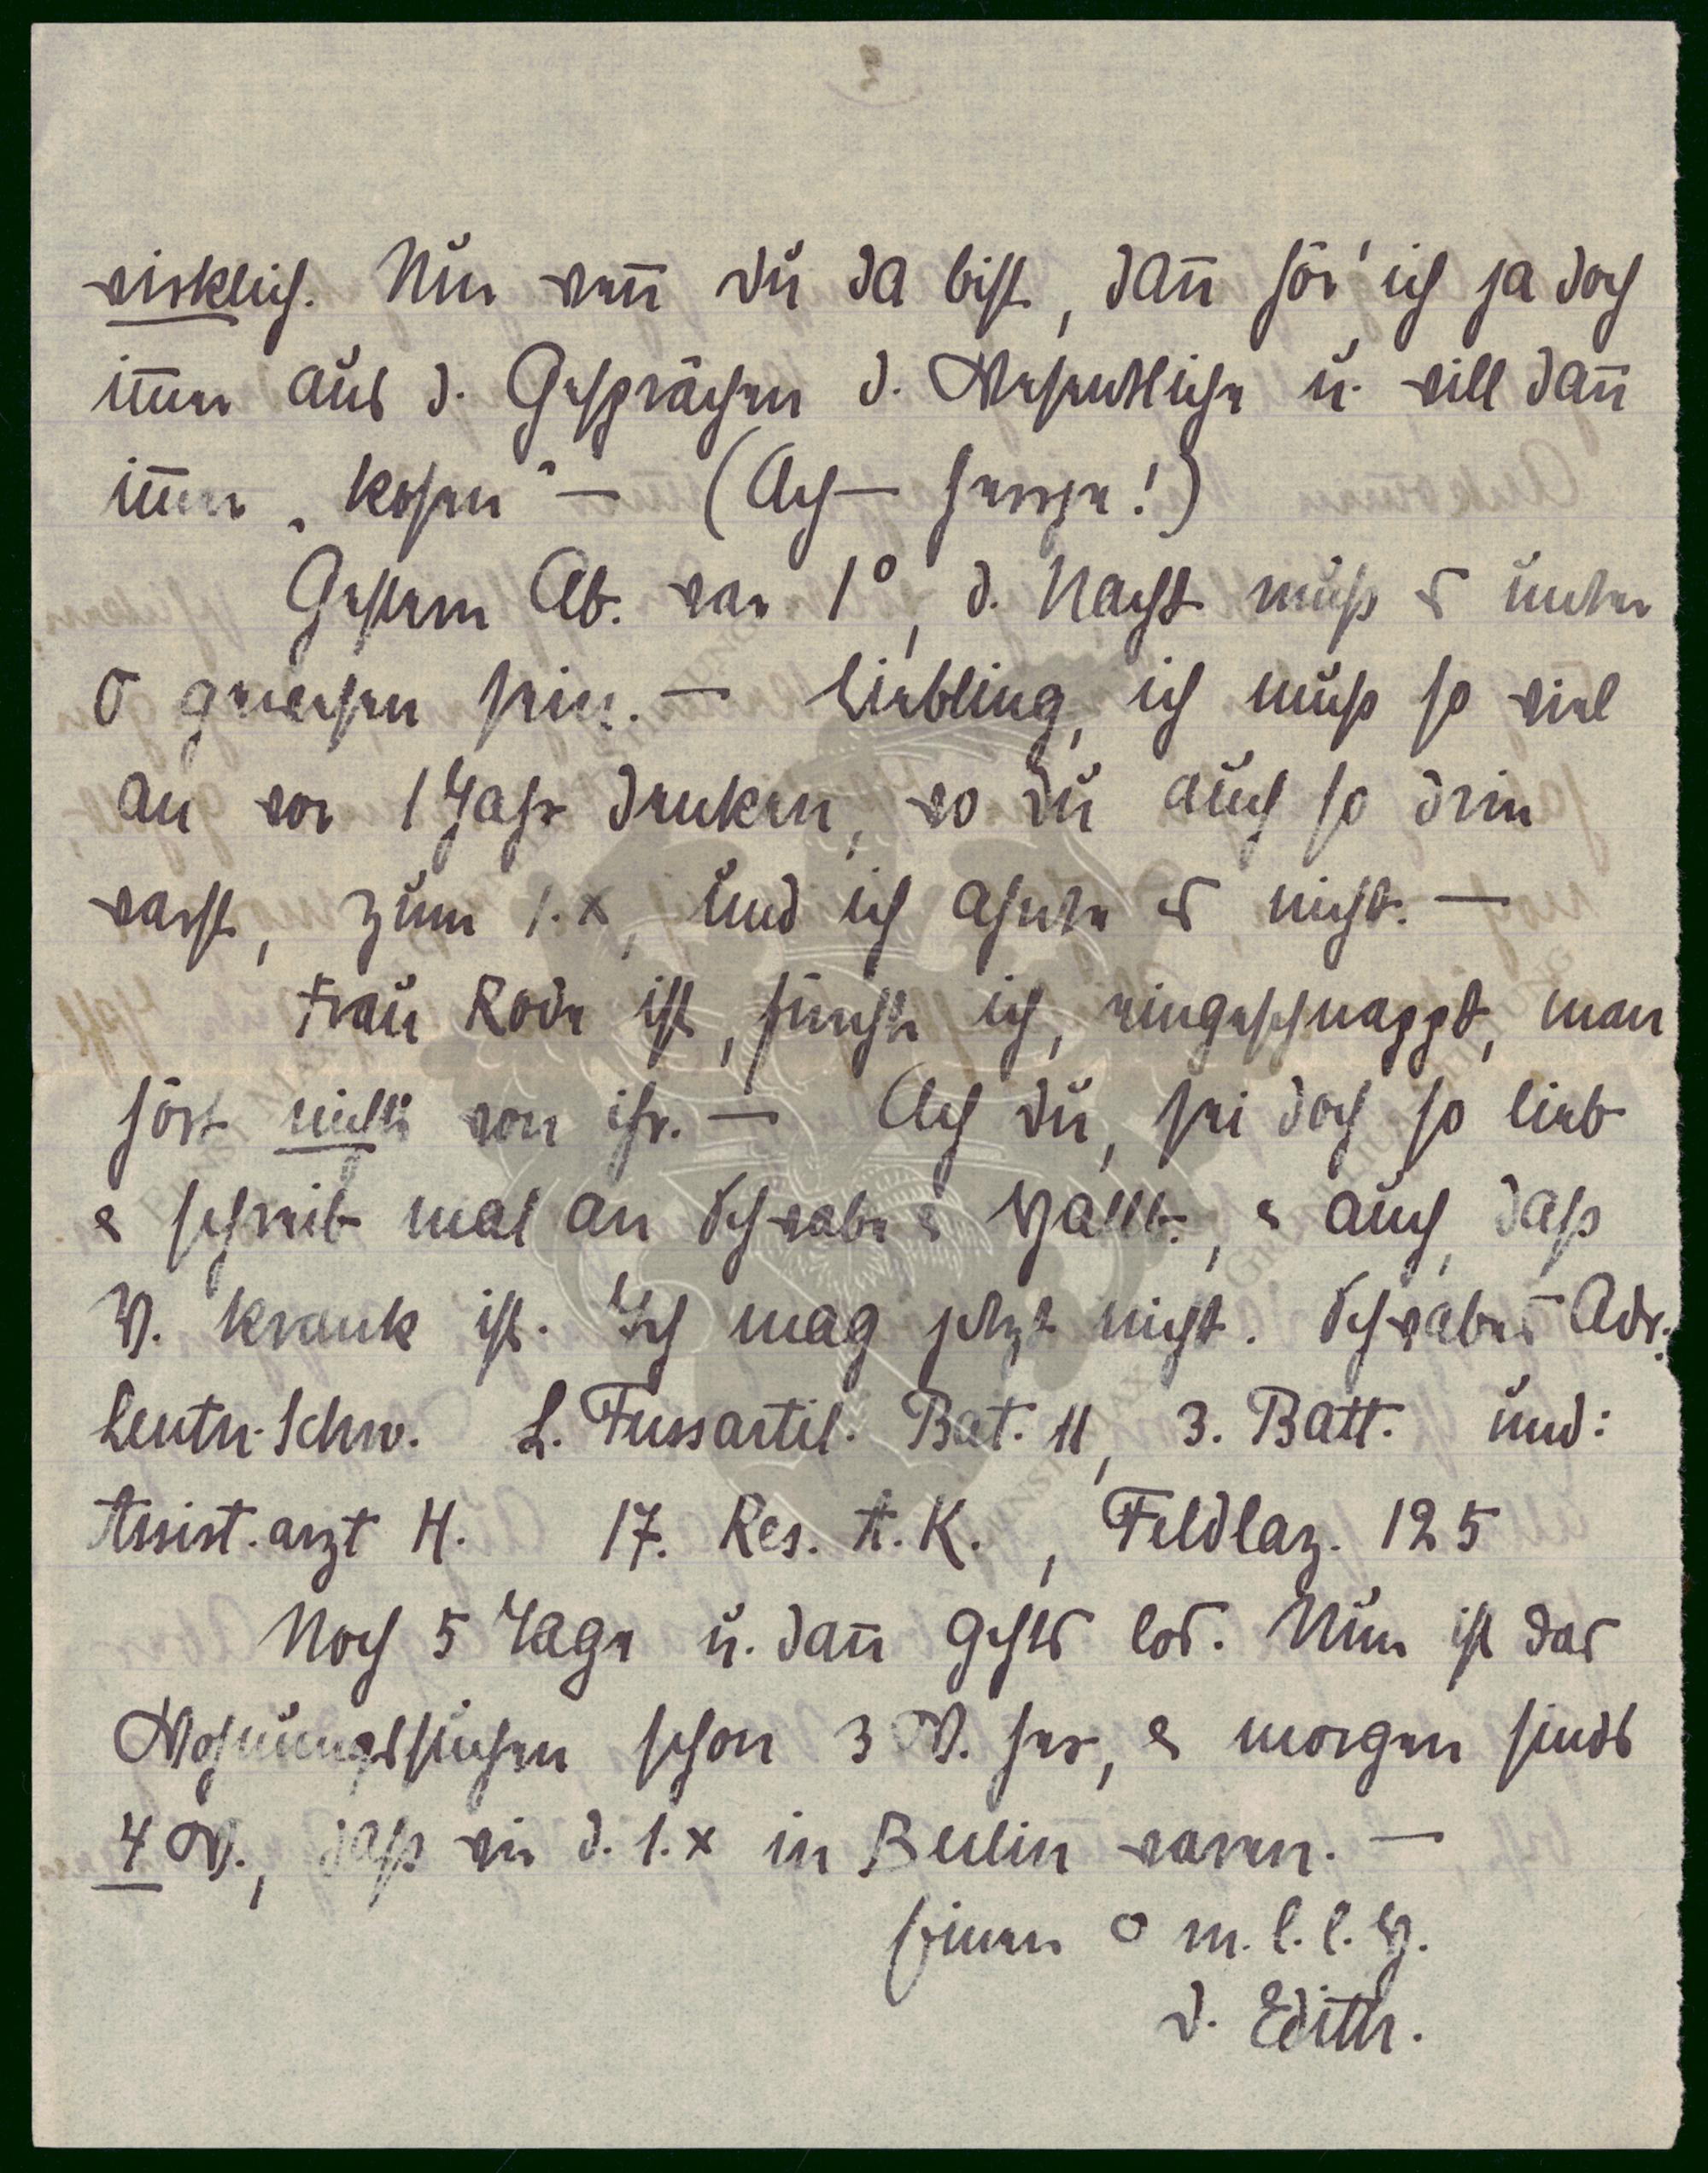 wirklich. Nur wen̄ du da bist, dan̄ hör' ich ja doch
im̄er aus d. Gesprächen d. Wesentliche u. will dan̄
im̄er „kosen" — (Ach — herrje!)
Gestern Ab. war 1°, d. Nacht muß es unter
0 gewesen sein. — Liebling, ich muß so viel
an vor 1 Jahr denken, wo du auch so drin
warst, zum 1. X, und ich ahnte es nicht. —
Frau Rode ist, fürcht ich, eingeschnappt, man
hört nichts von ihr. — Ach du, sei doch so lieb
& schreib mal an Schwabe & Hallb., & auch, daß
V. krank ist. Ich mag jetzt nicht. Schwabes Adr.:
Leutn. Schw. L. Fussartil. Bat. 11, 3. Batt. und:
Assist. arzt H. 17. Res. A. K., Feldlaz. 125
Noch 5 Tage u. dan̄ gehts los. Nun ist das
Wohnungssuchen schon 3 W. her, & morgen sinds
4 W., daß wir d. 1. X in Berlin waren. —
Einen o m. l. l. H.
d. Edith.